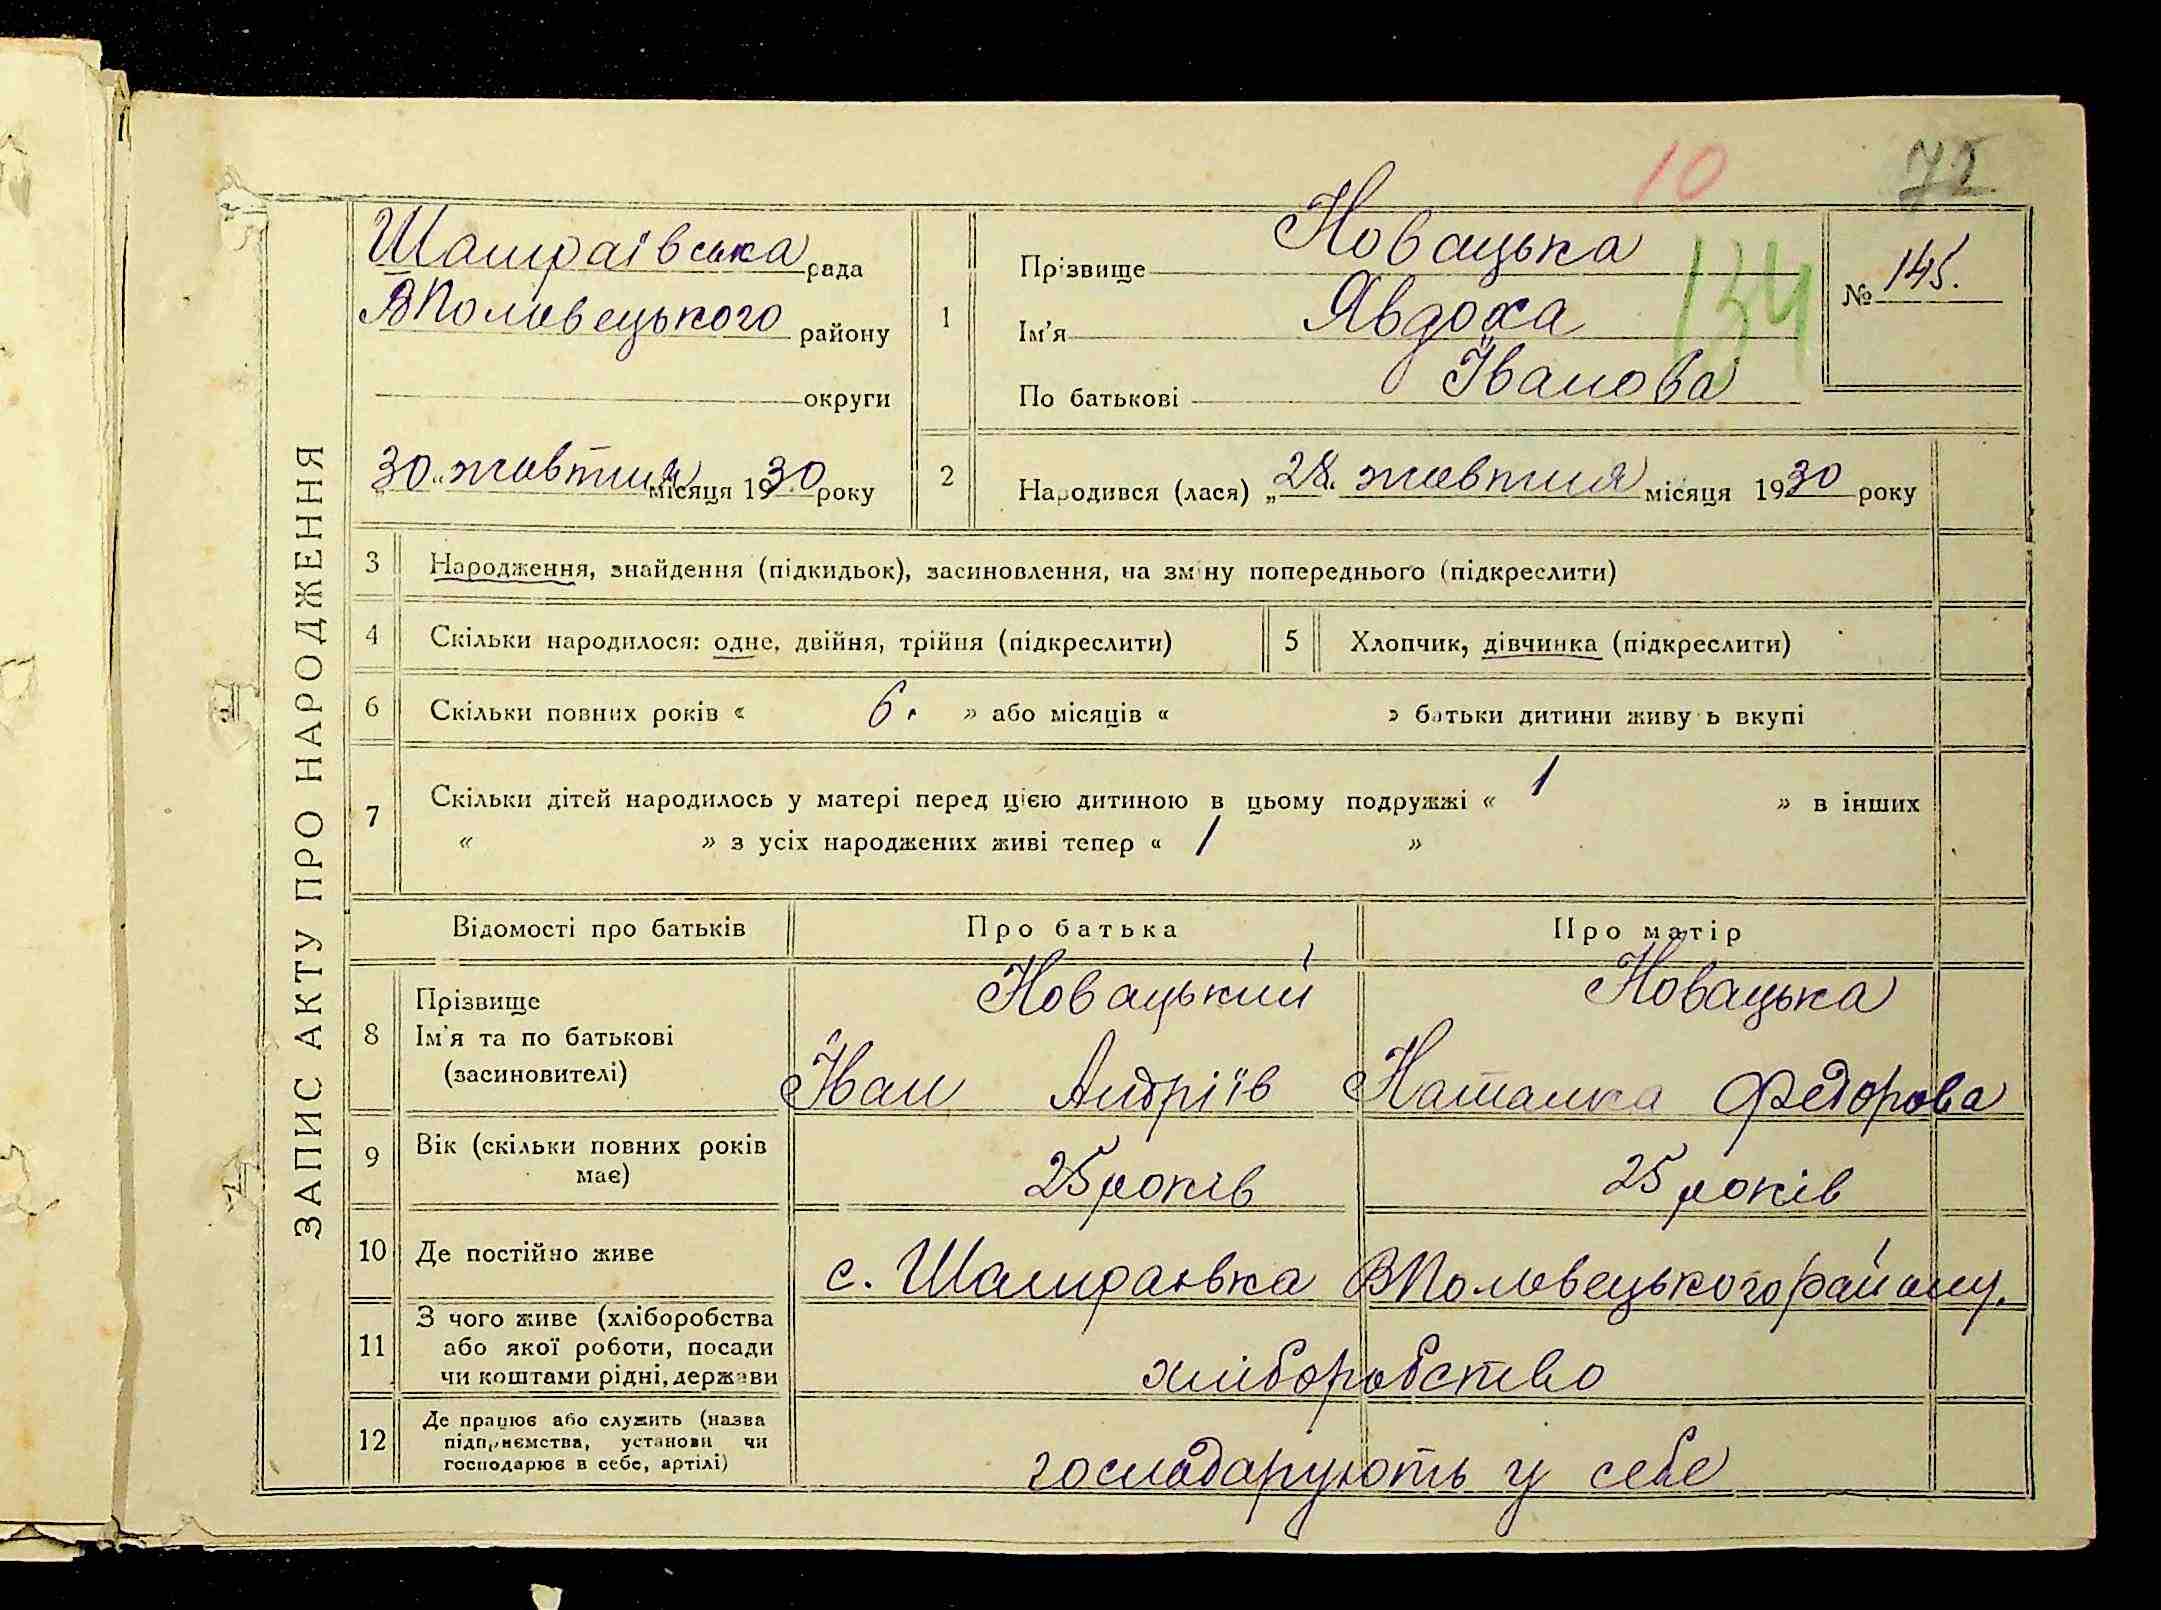 10
72
ЗАПИС АКТУ ПРО НАРОДЖЕННЯ
Шамраївська рада
ВПоловецького району
округи
„30" жовтня місяця 1930 року
1
Прізвище Новацька
Ім'я Явдоха
По батькові Іванова
134
№ 145.
2
Народився (лася) „28." жовтня місяця 1930 року
3 Народження, знайдення (підкидьок), засиновлення, на зміну попереднього (підкреслити)
4 Скільки народилося: одне, двійня, трійня (підкреслити)
5 Хлопчик, дівчинка (підкреслити)
6 Скільки повних років « 6. » або місяців « » батьки дитини живуть вкупі
7 Скільки дітей народилось у матері перед цією дитиною в цьому подружжі « 1 » в інших
« » з усіх народжених живі тепер « 1 »
Відомості про батьків Про батька Про матір
8 Прізвище
Ім'я та по батькові
(засиновителі)
Новацький
Іван Андріїв
Новацька
Наталка Федорова
9 Вік (скільки повних років
має)
25 років 25 років
10 Де постійно живе с. Шамраївка ВПоловецького району.
11 З чого живе (хліборобства
або якої роботи, посади
чи коштами рідні, держави
хліборобство
12 Де працює або служить (назва
підприємства, установи чи
господарює в себе, артілі)
господарують у себе